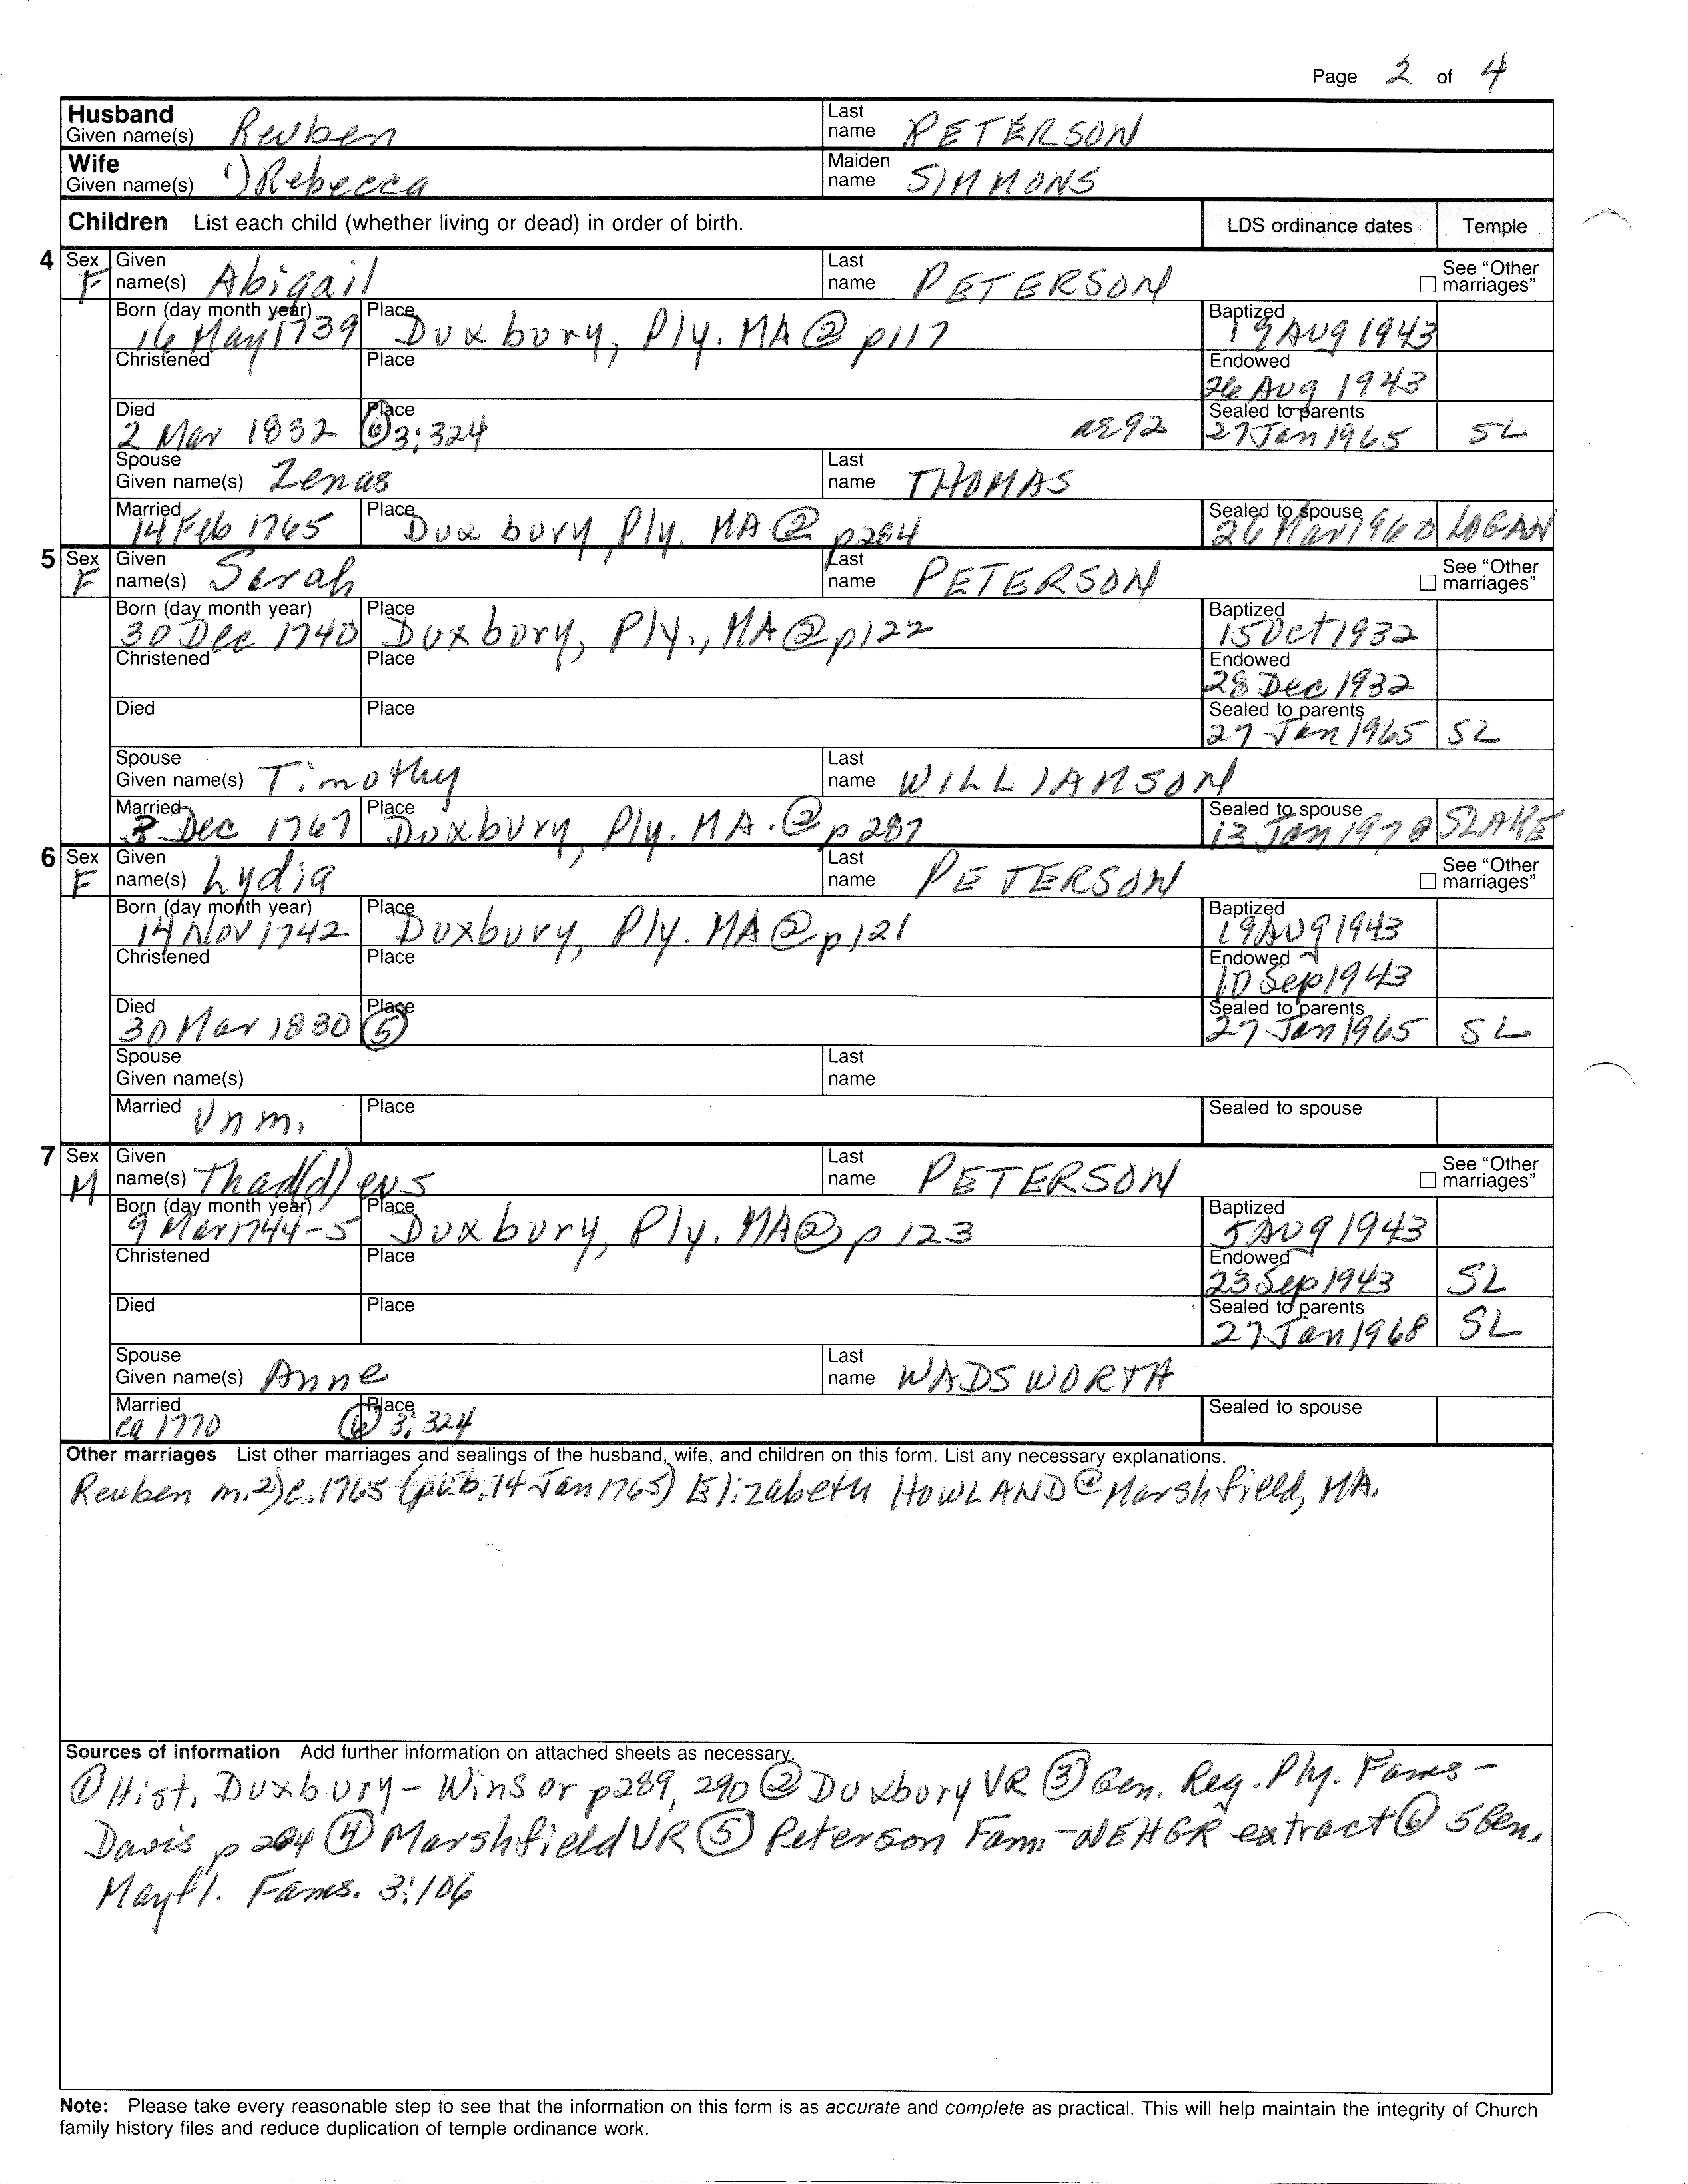 Page 2 of 4
Husband Given name(s) Reuben Last name PETERSON
Wife Given name(s) 1) Rebecca Maiden name SIMMONS
Children List each child (whether living or dead) in order of birth. LDS ordinance dates Temple
4 Sex F Given name(s) Abigail Last name PETERSON See "Other marriages"
Born (day month year) 16 May 1739 Place Duxbury, Ply. MA ② p117 Baptized 19 Aug 1943
Christened Place Endowed 26 Aug 1943
Died 2 Mar 1832 Place ⑥ 3:324 ae 92 Sealed to parents 27 Jan 1965 SL
Spouse Given name(s) Zenas Last name THOMAS
Married 14 Feb 1765 Place Duxbury, Ply. MA ② p284 Sealed to spouse 26 Mar 1960 LOGAN
5 Sex F Given name(s) Sarah Last name PETERSON See "Other marriages"
Born (day month year) 30 Dec 1740 Place Duxbury, Ply., MA ② p122 Baptized 15 Oct 1932
Christened Place Endowed 28 Dec 1932
Died Place Sealed to parents 27 Jan 1965 SL
Spouse Given name(s) Timothy Last name WILLIAMSON
Married 8 Dec 1767 Place Duxbury, Ply. MA. ② p287 Sealed to spouse 13 Jan 1978 SLAKE
6 Sex F Given name(s) Lydia Last name PETERSON See "Other marriages"
Born (day month year) 14 Nov 1742 Place Duxbury, Ply. MA ② p121 Baptized 19 Aug 1943
Christened Place Endowed 10 Sep 1943
Died 30 Mar 1830 Place ⑤ Sealed to parents 27 Jan 1965 SL
Spouse Given name(s) Last name
Married Unm. Place Sealed to spouse
7 Sex M Given name(s) Thad(d)eus Last name PETERSON See "Other marriages"
Born (day month year) 9 Mar 1744-5 Place Duxbury, Ply. MA ② p123 Baptized 5 Aug 1943
Christened Place Endowed 23 Sep 1943 SL
Died Place Sealed to parents 27 Jan 1968 SL
Spouse Given name(s) Anne Last name WADSWORTH
Married ca 1770 Place ⑥ 3:324 Sealed to spouse
Other marriages List other marriages and sealings of the husband, wife, and children on this form. List any necessary explanations.
Reuben m. 2) c. 1765 (pub. 14 Jan 1765) Elizabeth HOWLAND @ Marshfield, MA.
Sources of information Add further information on attached sheets as necessary.
① Hist. Duxbury - Winsor p289, 290 ② Duxbury VR ③ Gen. Reg. Ply. Fams -
Davis p 204 ④ Marshfield VR ⑤ Peterson Fam - NEHGR extract ⑥ 5 Gen.
Mayfl. Fams. 3:106
Note: Please take every reasonable step to see that the information on this form is as accurate and complete as practical. This will help maintain the integrity of Church
family history files and reduce duplication of temple ordinance work.